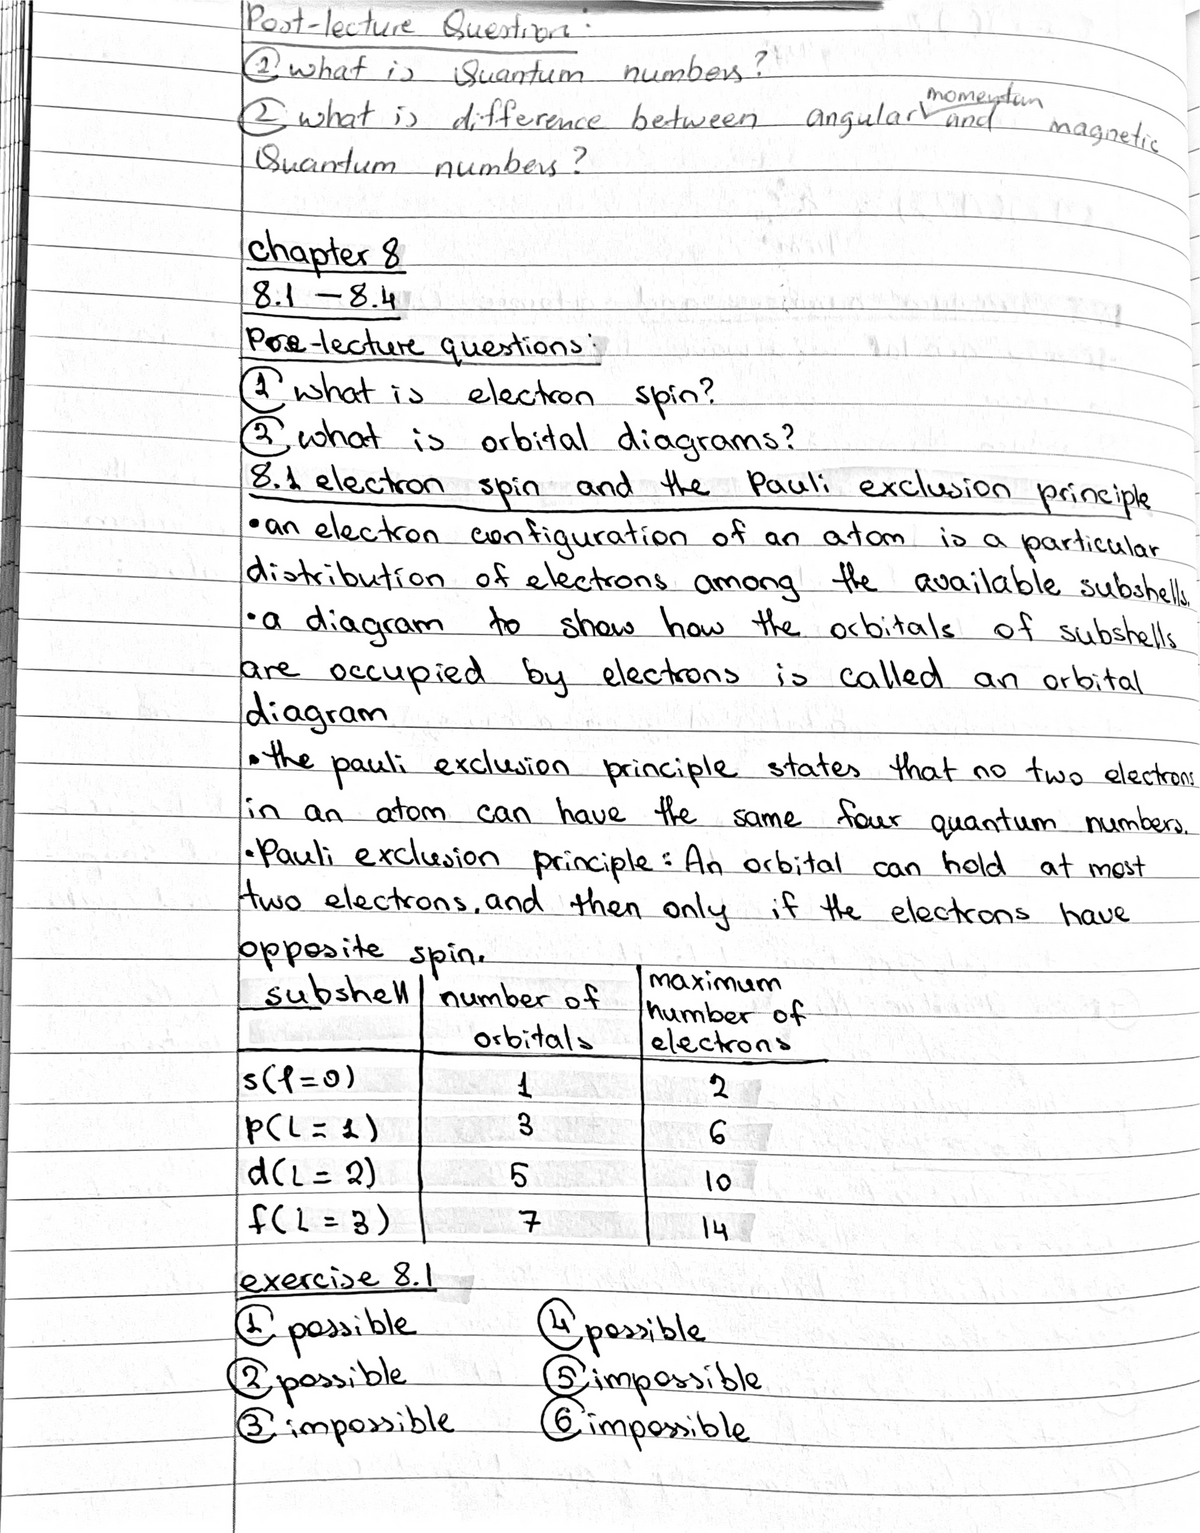 Post-lecture Question:
1 what is Quantum numbers?
2 what is difference between angular momentun and magnetic
Quantum numbers?
chapter 8
8.1 - 8.4
Pre-lecture questions:
1 what is electron spin?
2 what is orbital diagrams?
8.1 electron spin and the Pauli exclusion principle
• an electron configuration of an atom is a particular
distribution of electrons among the available subshells.
• a diagram to show how the orbitals of subshells
are occupied by electrons is called an orbital
diagram
• the pauli exclusion principle states that no two electrons
in an atom can have the same four quantum numbers.
• Pauli exclusion principle: An orbital can hold at most
two electrons, and then only if the electrons have
opposite spin.
subshell number of orbitals maximum number of electrons
s(l=0) 1 2
P(L=1) 3 6
d(L=2) 5 10
f(L=3) 7 14
exercise 8.1
1 possible 4 possible
2 possible 5 impossible
3 impossible 6 impossible